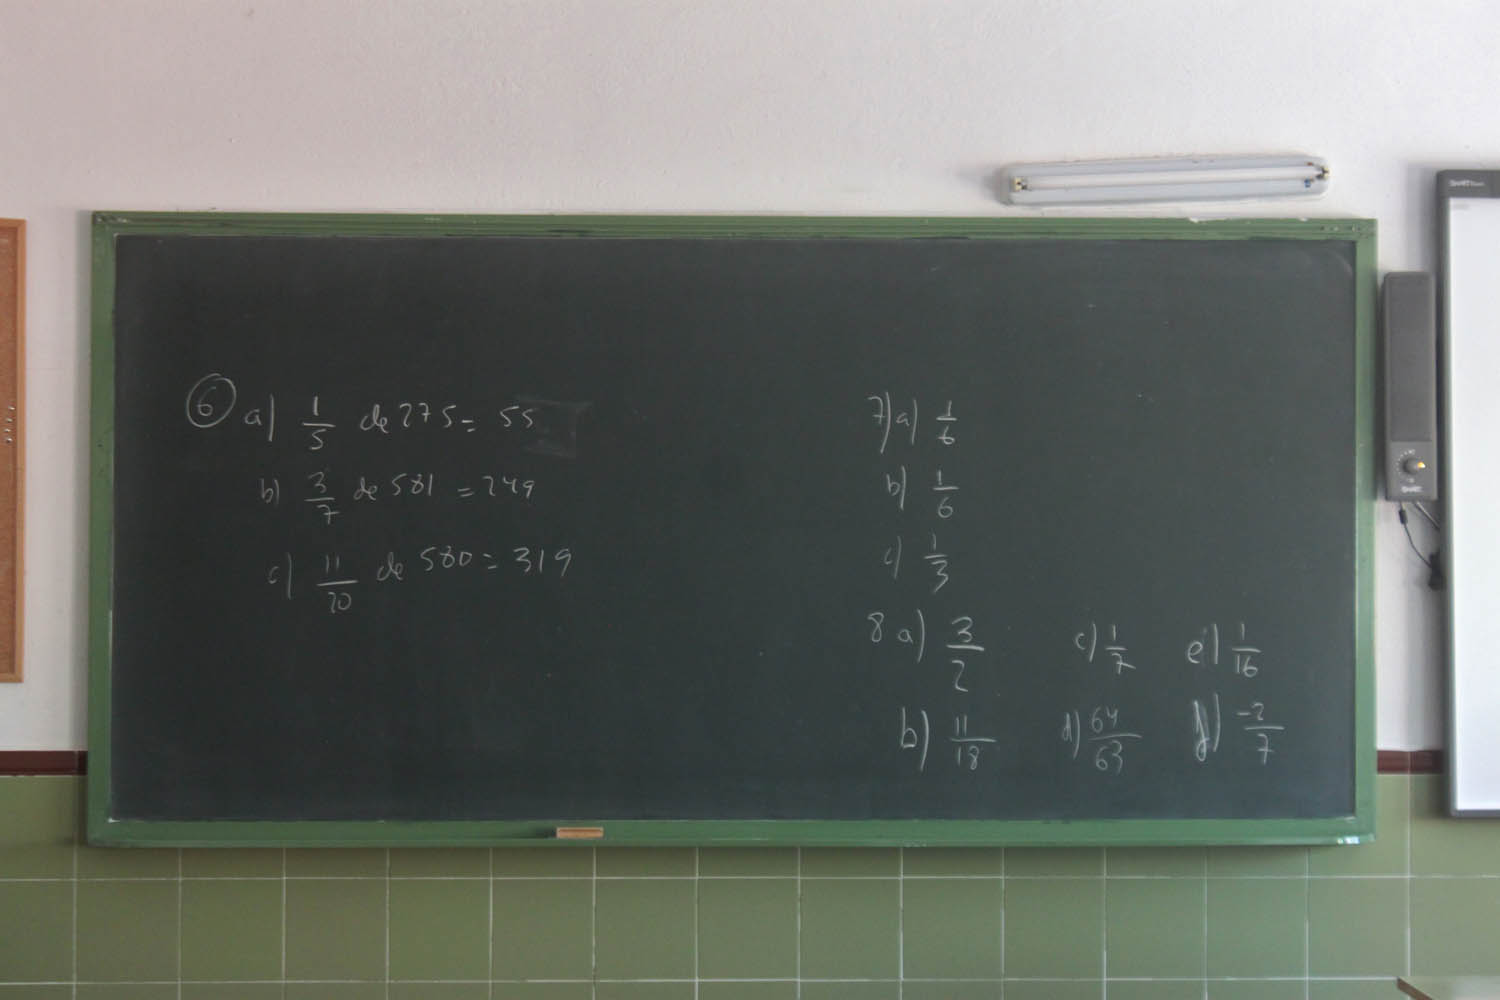 6 a) 1/5 de 275 = 55
b) 3/7 de 581 = 249
c) 11/20 de 580 = 319
7) a) 1/6
b) 1/6
c) 1/3
8 a) 3/2 c) 1/7 e) 1/16
b) 11/18 d) 64/63 f) -2/7
SMART
SMART